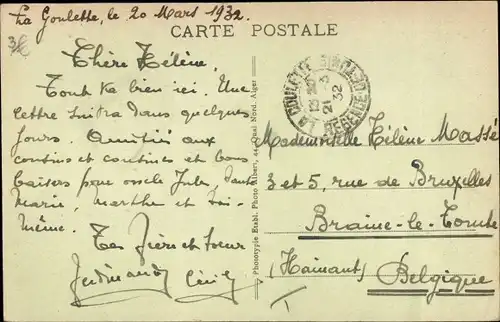 La Goulette, le 20 Mars 1932.
CARTE POSTALE
Chère Hélène,
Tout va bien ici. Une
lettre suivra dans quelques
jours. Amitiés aux
cousins et cousines et bons
baisers pour oncle Jules, tante
Marie, Marthe et toi-
même.
Tes frère et soeur
Ferdinand Cécile
Phototypie Etabl. Photo Albert, Quai Nord. Alger
LA GOULETTE
REGENCE DE TUNIS
21 3
32
Mademoiselle Hélène Massé
3 et 5, rue de Bruxelles
Braine-le-Comte
(Hainaut) Belgique
T